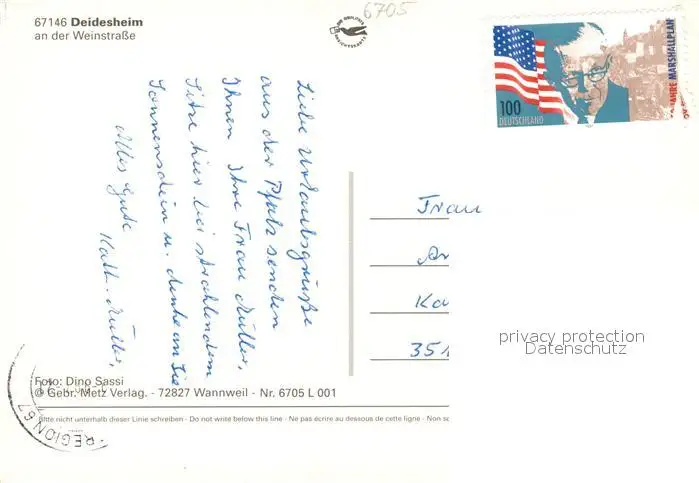 67146 Deidesheim
an der Weinstraße
6705
100
DEUTSCHLAND
JAHRE MARSHALLPLAN
Liebe Urlaubsgrüße
aus der Pfalz senden
Ihnen Ihre Frau Müller,
Sitze hier bei strahlendem
Sonnenschein u. denke an Sie
Alles Gute
Kath. Müller,
Frau
Ka
351
privacy protection
Datenschutz
Foto: Dino Sassi
© Gebr. Metz Verlag. - 72827 Wannweil - Nr. 6705 L 001
Bitte nicht unterhalb dieser Linie schreiben - Do not write below this line - Ne pas écrire au dessous de cette ligne - Non
REGION 67